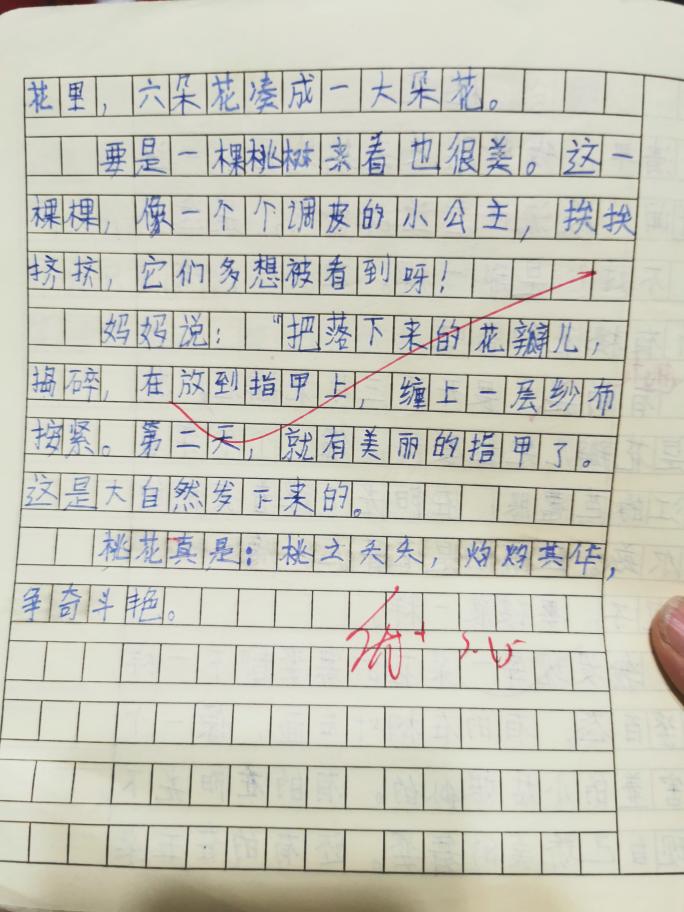 花里，六朵花凑成一大朵花。
要是一棵桃树来看也很美。这一
棵棵，像一个个调皮的小公主，挨挨
挤挤，它们多想被看到呀！
妈妈说：“把落下来的花瓣儿，
捣碎，在放到指甲上，缠上一层纱布
按紧。第二天，就有美丽的指甲了。
这是大自然发下来的。
桃花真是：桃之夭夭，灼灼其华，
争奇斗艳。
优+